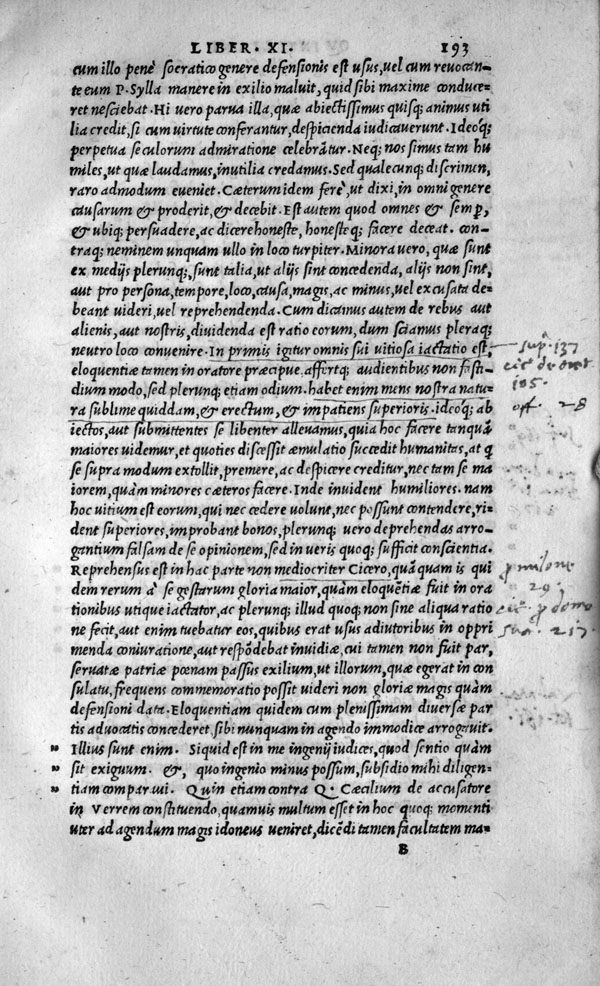 LIBER · XI · 193
cum illo penè socratico genere defensionis est usus, uel cum reuocan-
te eum P. Sylla manere in exilio maluit, quid sibi maxime conduce-
ret nesciebat. Hi uero parua illa, quæ abiectissimus quisq; animus uti
lia credit, si cum uirtute conferantur, despicienda iudicauerunt. Ideoq;
perpetua seculorum admiratione celebrãtur. Neq; nos simus tam hu
miles, ut quæ laudamus, inutilia credamus. Sed qualecunq; discrimen,
raro admodum eueniet. Cæterum idem ferè, ut dixi, in omni genere
causarum & proderit, & decebit. Est autem quod omnes & semp,
& ubiq; persuadere, ac dicere honeste, honesteq; facere deceat. con-
traq; neminem unquam ullo in loco turpiter. Minora uero, quæ sunt
ex medijs plerunq;, sunt talia, ut alijs sint concedenda, alijs non sint,
aut pro persona, tempore, loco, causa, magis, ac minus, uel excusata de-
beant uideri, uel reprehendenda. Cum dicamus autem de rebus aut
alienis, aut nostris, diuidenda est ratio eorum, dum sciamus pleraq;
neutro loco conuenire. In primis igitur omnis sui uitiosa iactatio est,
eloquentiæ tamen in oratore præcipue, affertq; audientibus non fasti-
dium modo, sed plerunq; etiam odium. habet enim mens nostra natu-
ra sublime quiddam, & erectum, & impatiens superioris. ideoq; ab
iectos, aut submittentes se libenter alleuamus, quia hoc facere tanquã
maiores uidemur, et quoties discessit æmulatio succedit humanitas, at q
se supra modum extollit, premere, ac despicere creditur, nec tam se ma
iorem, quàm minores cæteros facere. Inde inuident humiliores. nam
hoc uitium est eorum, qui nec cedere uolunt, nec possunt contendere, ri-
dent superiores, improbant bonos, plerunq; uero deprehendas arro-
gantium falsam de se opinionem, sed in ueris quoq; sufficit conscientia.
Reprehensus est in hac parte non mediocriter Cicero, quã quam is qui
dem rerum à se gestarum gloria maior, quàm eloquẽtiæ fuit in ora
tionibus utique iactator, ac plerunq; illud quoq; non sine aliqua ratio
ne fecit, aut enim tuebatur eos, quibus erat usus adiutoribus in oppri
menda coniuratione, aut respõdebat inuidiæ, cui tamen non fuit par,
seruatæ patriæ pœnam passus exilium, ut illorum, quæ egerat in con
sulatu, frequens commemoratio possit uideri non gloriæ magis quàm
defensioni data. Eloquentiam quidem cum plenissimam diuersæ par
tis aduocatis concederet, sibi nunquam in agendo immodice arrogauit.
" Illius sunt enim. Siquid est in me ingenij iudices, quod sentio quàm
" sit exiguum. &, quo ingenio minus possum, subsidio mihi diligen-
" tiam comparaui. Quin etiam contra Q. Cæcilium de accusatore
in Verrem constituendo, quamuis multum esset in hoc quoq; momenti
uter ad agendum magis idoneus ueniret, dicẽdi tamen facultatem ma-
B
sup. 137
cic de orat
185.
off. 28
p milone
29.
cic. p domo
sua. 217.